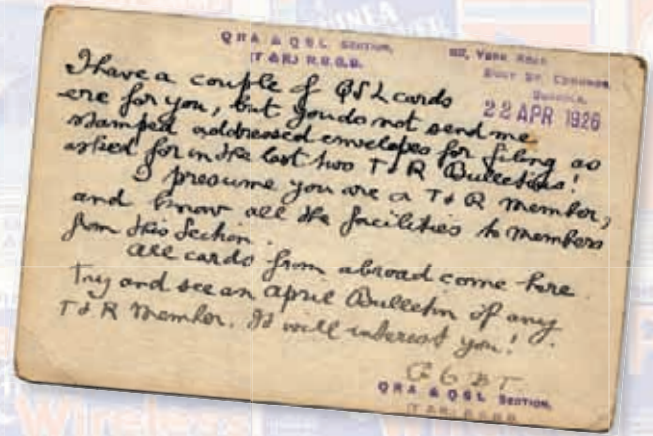 QRA & QSL SECTION,
(T & R) R.S.G.B.
YORK ROAD
BURY ST. EDMUNDS
SUFFOLK.
22 APR 1926
I have a couple of QSL cards
ere for you, but you do not send me
stamped addressed envelopes for filing as
asked for in the last two T & R Bulletins!
I presume you are a T & R member,
and know all the facilities to members
from this Section.
All cards from abroad come here.
Try and see an April Bulletin if any
T & R Member. It will interest you!
G6BT.
QRA & QSL SECTION,
(T & R) R.S.G.B.
Wireless